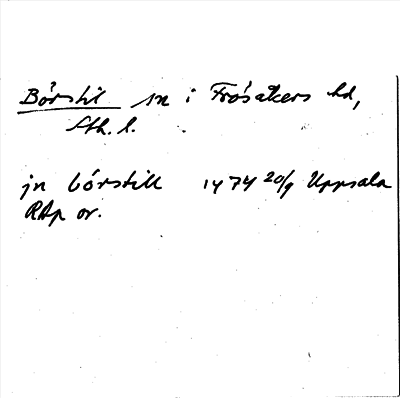 Börstil sn i Frösåkers hd,
Sth. l.
jn börstill 1474 20/9 Uppsala
RAp or.